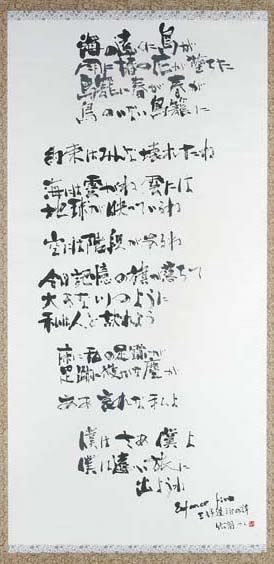 海の遠くに島が
雨に椿の花が堕ちた
鳥籠に春が春が
鳥のいない鳥籠に
約束はみんな壊れたね
海には雲がね 雲には
地球が映っているね
空には階段があるね
今日記憶の旗が落ちて
大きな川のように
私は人と訣れよう
床に私の足跡が
足跡に微かな塵が
ああ哀れな私よ
僕はさあ僕よ
僕は遠い旅に
出ようね
Enfance finie
三好達治の詩